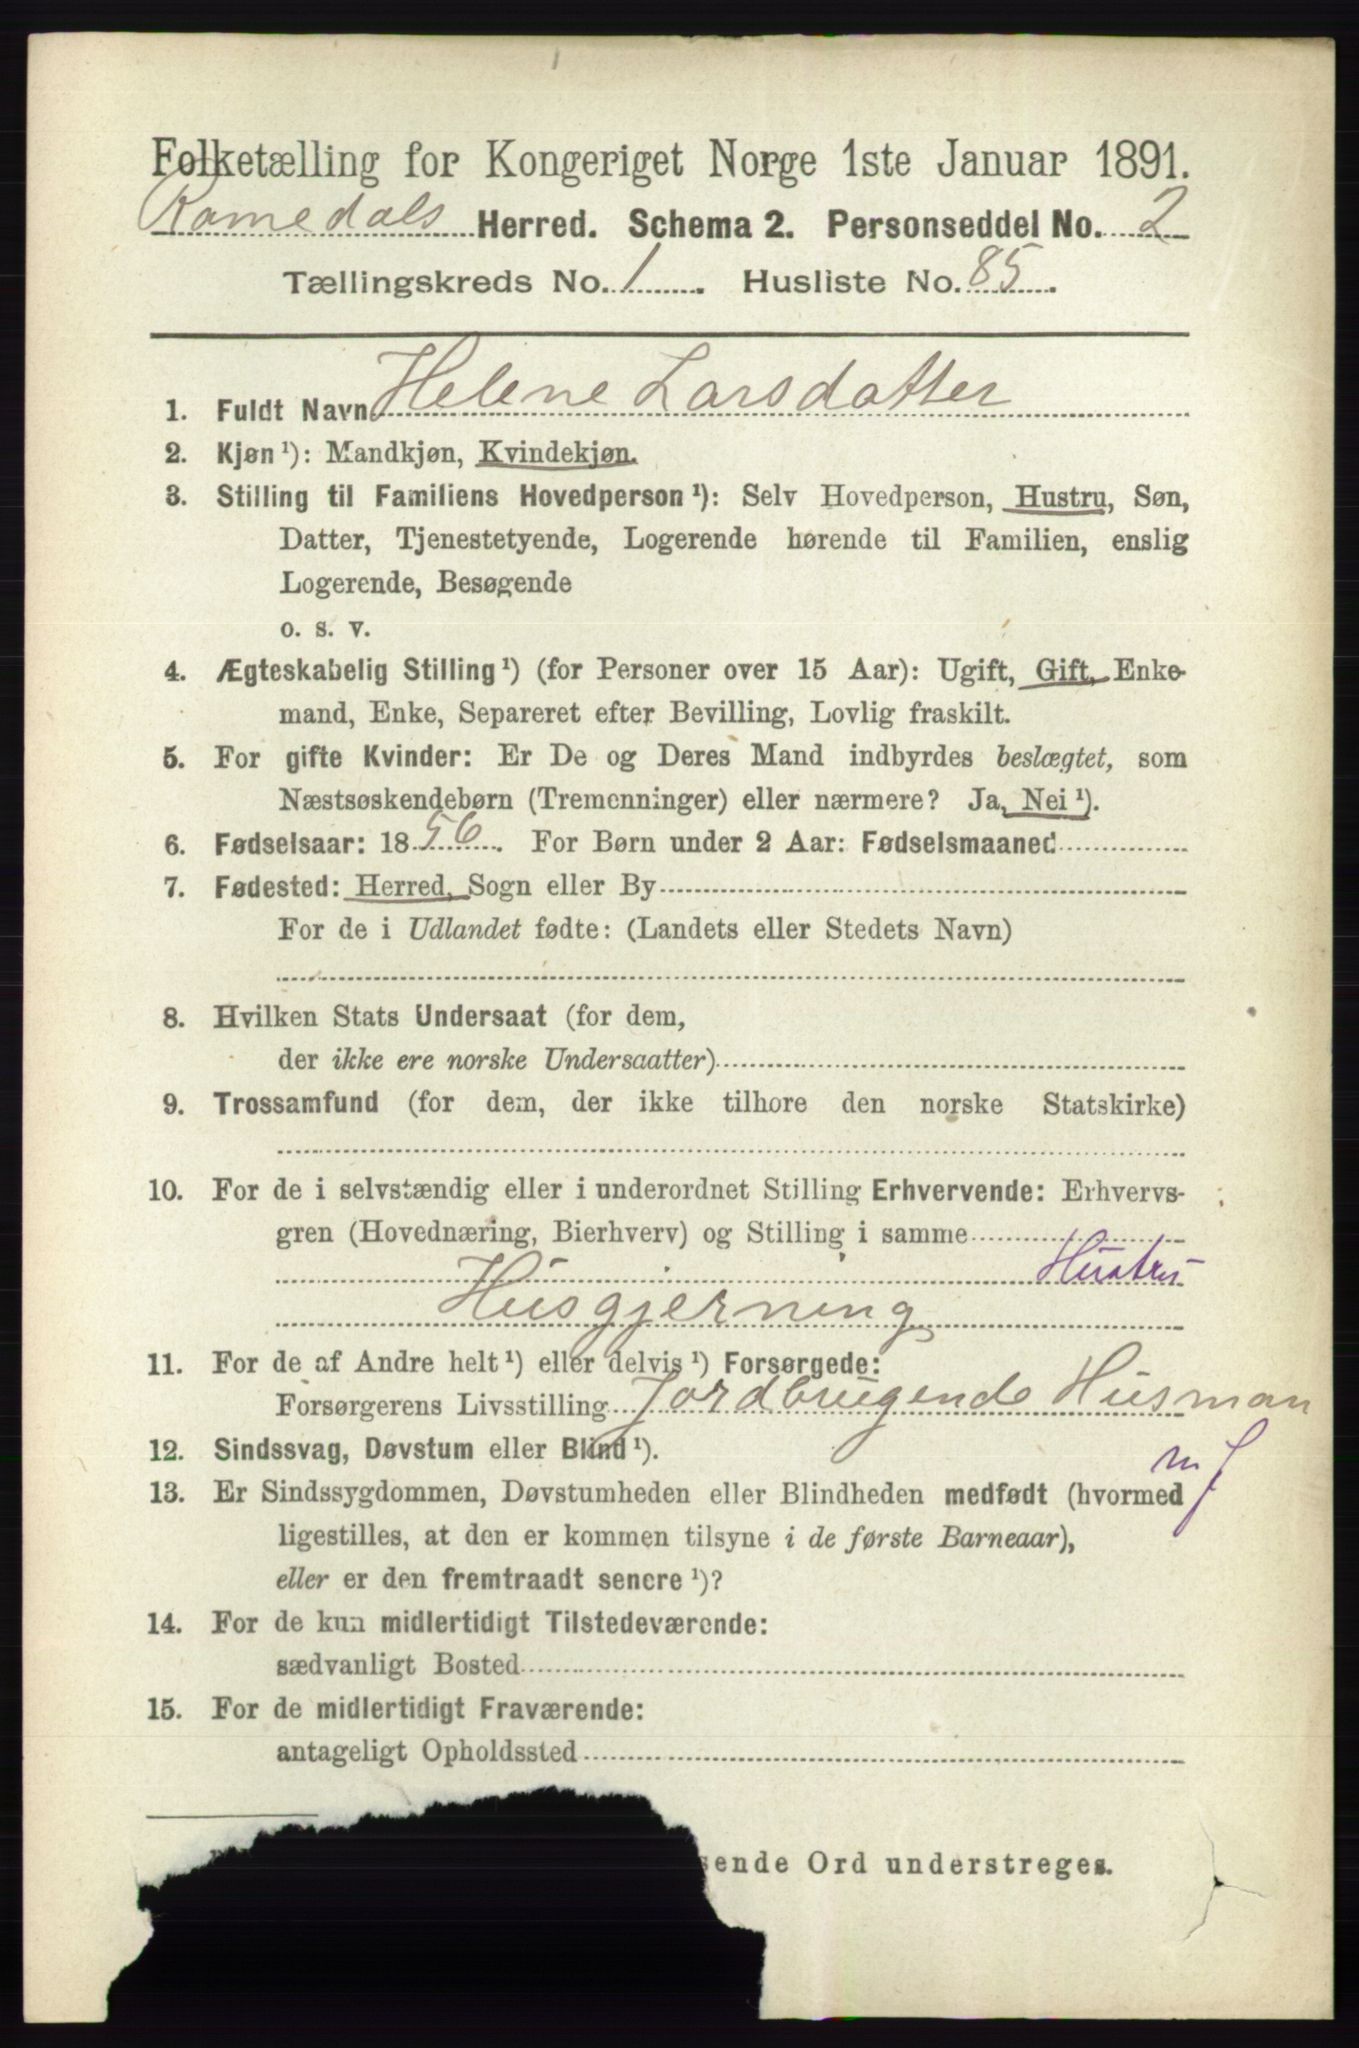 Folketælling for Kongeriget Norge 1ste Januar 1891.
Romedals Herred. Schema 2. Personseddel No. 2
Tællingskreds No. 1. Husliste No. 85.
1. Fuldt Navn Helene Larsdatter
2. Kjøn¹): Mandkjøn, Kvindekjøn.
3. Stilling til Familiens Hovedperson¹): Selv Hovedperson, Hustru, Søn,
Datter, Tjenestetyende, Logerende hørende til Familien, enslig
Logerende, Besøgende
o. s. v.
4. Ægteskabelig Stilling¹) (for Personer over 15 Aar): Ugift, Gift, Enke-
mand, Enke, Separeret efter Bevilling, Lovlig fraskilt.
5. For gifte Kvinder: Er De og Deres Mand indbyrdes beslægtet, som
Næstsøskendebørn (Tremenninger) eller nærmere? Ja, Nei¹).
6. Fødselsaar: 1856. For Børn under 2 Aar: Fødselsmaaned
7. Fødested: Herred, Sogn eller By
For de i Udlandet fødte: (Landets eller Stedets Navn)
8. Hvilken Stats Undersaat (for dem,
der ikke ere norske Undersaatter)
9. Trossamfund (for dem, der ikke tilhore den norske Statskirke)
10. For de i selvstændig eller i underordnet Stilling Erhvervende: Erhvervs-
gren (Hovednæring, Bierhverv) og Stilling i samme
Hustru
Husgjerning
11. For de af Andre helt¹) eller delvis¹) Forsørgede:
Forsørgerens Livsstilling Jordbrugende Husman
12. Sindssvag, Døvstum eller Blind¹).
m J
13. Er Sindssygdommen, Døvstumheden eller Blindheden medfødt (hvormed
ligestilles, at den er kommen tilsyne i de første Barneaar),
eller er den fremtraadt senere¹)?
14. For de kun midlertidigt Tilstedeværende:
sædvanligt Bosted
15. For de midlertidigt Fraværende:
antageligt Opholdssted
sende Ord understreges.